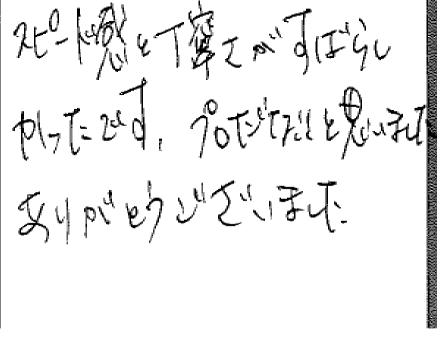 スピード感と丁寧さがすばらし
かったです。プロだなと思いました
ありがとうございました